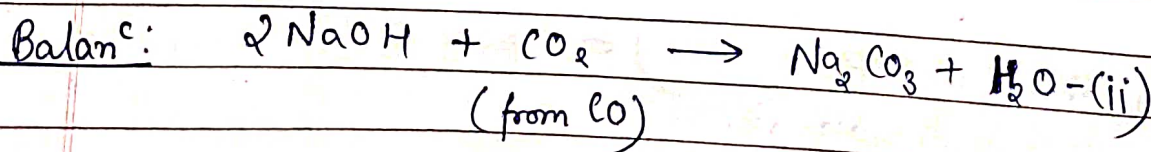 Balanᶜ: 2 NaOH + CO₂ → Na₂CO₃ + H₂O -(ii)
(from CO)